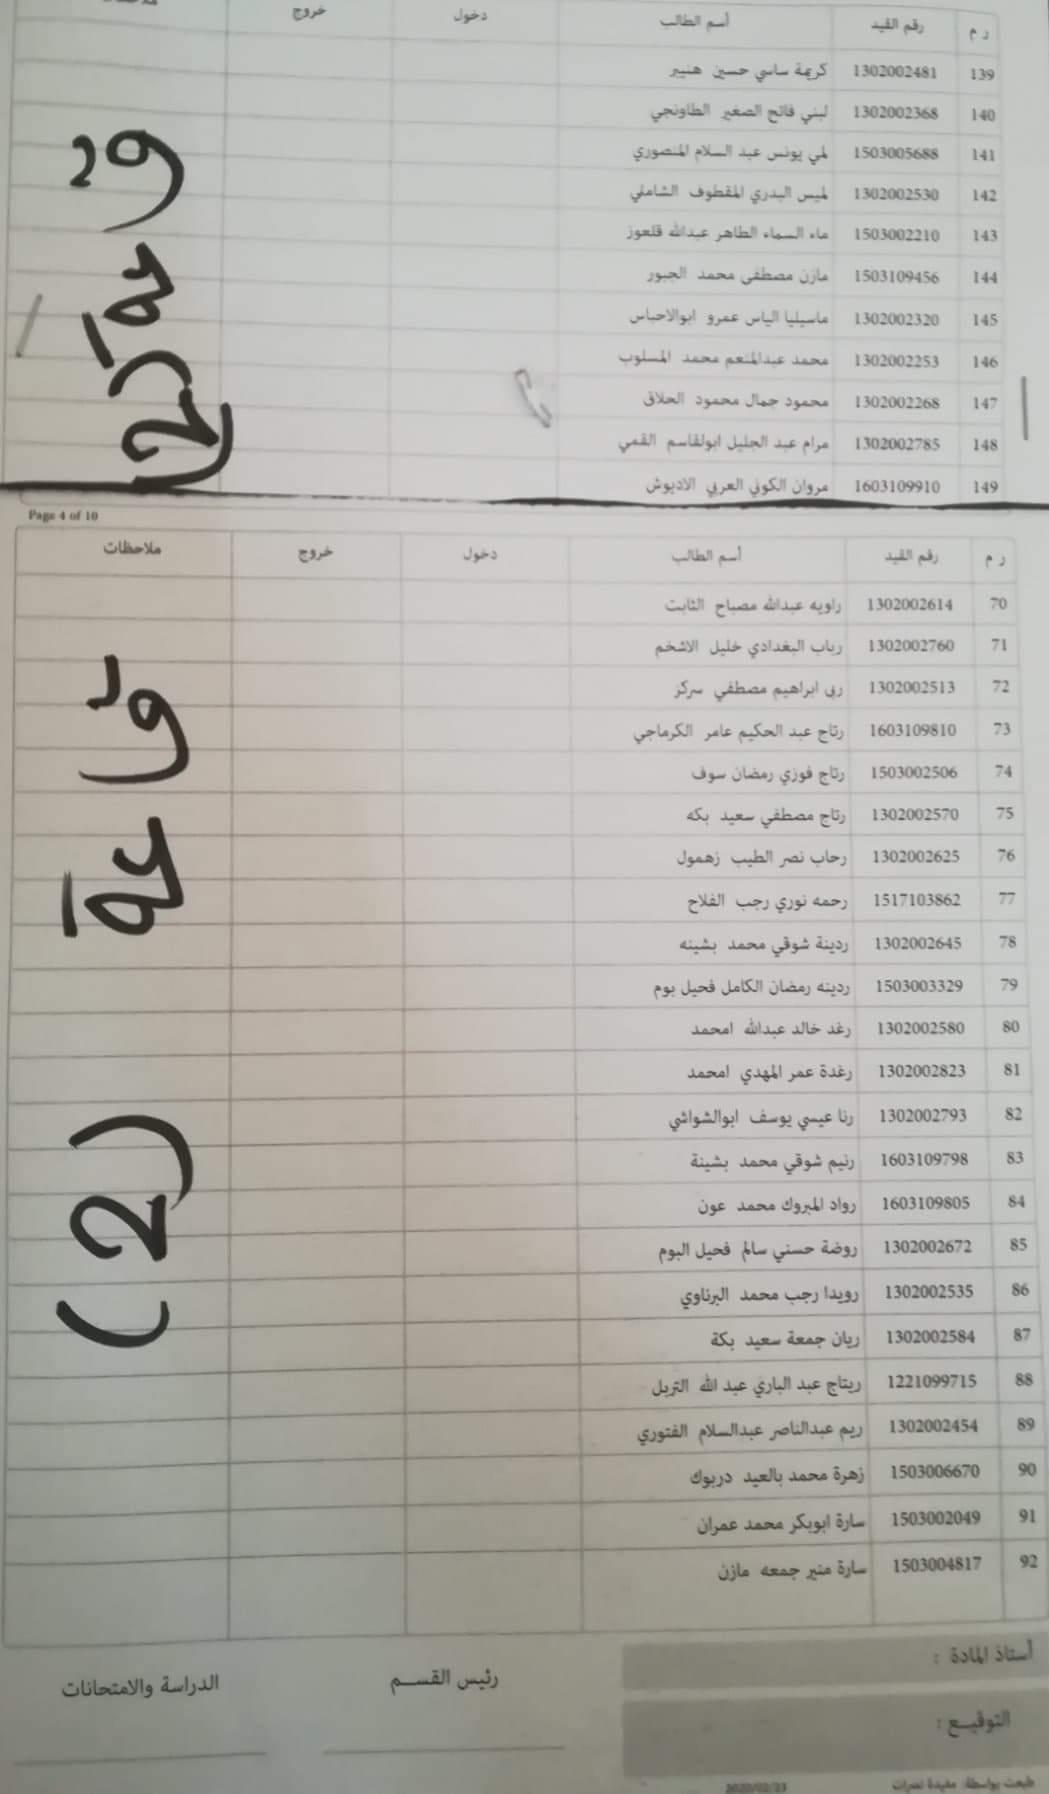 ر م رقم القيد أسم الطالب دخول خروج
139 1302002481 كريمة ساسي حسين هنيبر
140 1302002368 لبني فاتح الصغير الطاونجي
141 1503005688 لمي يونس عبد السلام المنصوري
142 1302002530 لميس البدري المقطوف الشاملي
143 1503002210 ماء السماء الطاهر عبدالله قلعوز
144 1503109456 مازن مصطفى محمد الجبور
145 1302002320 ماسيليا الياس عمرو ابوالاحباس
146 1302002253 محمد عبدالمنعم محمد المسلوب
147 1302002268 محمود جمال محمود الحلاق
148 1302002785 مرام عبد الجليل ابولقاسم القمي
149 1603109910 مروان الكوني العربي الاديوش
Page 4 of 10
ر م رقم القيد أسم الطالب دخول خروج ملاحظات
70 1302002614 راويه عبدالله مصباح الثابت
71 1302002760 رباب البغدادي خليل الاشخم
72 1302002513 ربى ابراهيم مصطفي سركز
73 1603109810 رتاج عبد الحكيم عامر الكرماجي
74 1503002506 رتاج فوزي رمضان سوف
75 1302002570 رتاج مصطفي سعيد بكه
76 1302002625 رحاب نصر الطيب زهمول
77 1517103862 رحمه نوري رجب الفلاح
78 1302002645 ردينة شوقي محمد بشينه
79 1503003329 ردينه رمضان الكامل فحيل بوم
80 1302002580 رغد خالد عبدالله امحمد
81 1302002823 رغدة عمر المهدي امحمد
82 1302002793 رنا عيسي يوسف ابوالشواشي
83 1603109798 رنيم شوقي محمد بشينة
84 1603109805 رواد المبروك محمد عون
85 1302002672 روضة حسني سالم فحيل البوم
86 1302002535 رويدا رجب محمد البرناوي
87 1302002584 ريان جمعة سعيد بكة
88 1221099715 ريتاج عبد الباري عبد الله التريل
89 1302002454 ريم عبدالناصر عبدالسلام الفتوري
90 1503006670 زهرة محمد بالعيد دربوك
91 1503002049 سارة ابوبكر محمد عمران
92 1503004817 سارة منير جمعه مازن
(2)
أستاذ المادة :
رئيس القسم
الدراسة والامتحانات
التوقيع :
طبعت بواسطة: مفيدة نصرات 2020/02/23